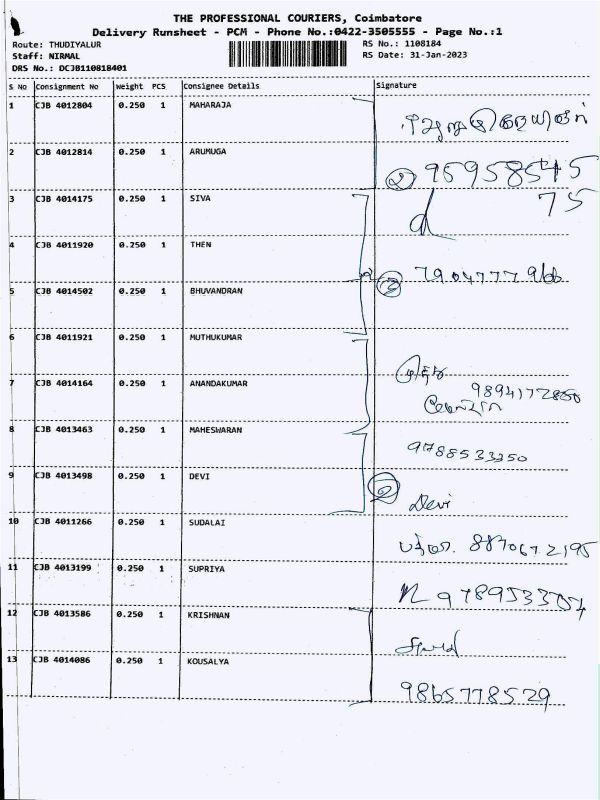 THE PROFESSIONAL COURIERS, Coimbatore
Delivery Runsheet - PCM - Phone No.:0422-3505555 - Page No.:1
Route: THUDIYALUR RS No.: 1108184
Staff: NIRMAL RS Date: 31-Jan-2023
DRS No.: DCJB110818401
S No Consignment No Weight PCS Consignee Details Signature
1 CJB 4012804 0.250 1 MAHARAJA
2 CJB 4012814 0.250 1 ARUMUGA
② 95958545
75
3 CJB 4014175 0.250 1 SIVA
4 CJB 4011920 0.250 1 THEN
5 CJB 4014502 0.250 1 BHUVANDRAN
6 CJB 4011921 0.250 1 MUTHUKUMAR
7 CJB 4014164 0.250 1 ANANDAKUMAR
9894172850
8 CJB 4013463 0.250 1 MAHESWARAN
9788533350
9 CJB 4013498 0.250 1 DEVI ② Devi
10 CJB 4011266 0.250 1 SUDALAI
8870672195
11 CJB 4013199 0.250 1 SUPRIYA
12 CJB 4013586 0.250 1 KRISHNAN
13 CJB 4014086 0.250 1 KOUSALYA
9865778529